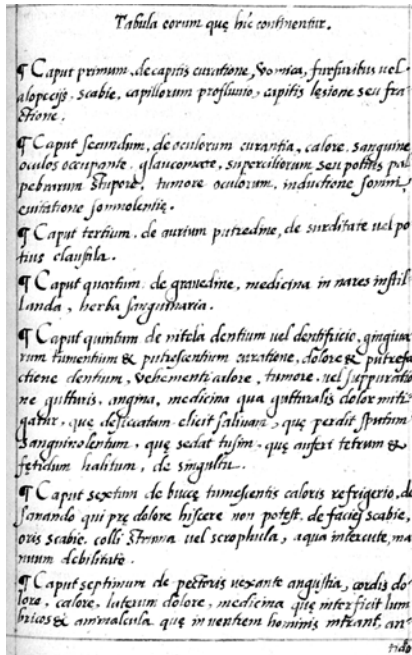 Tabula eorum quę hic continentur.
¶ Caput primum, de capitis curatione, vomica, furfuribus uel
alopecijs, scabie, capillorum profluuio, capitis lęsione seu fra
ctione.
¶ Caput secundum, de oculorum curantia, calore, sanguine
oculos occupante, glaucomate, superciliorum seu potius pal
pebrarum stupore, tumore oculorum, inductione somni,
euitatione somnolentię.
¶ Caput tertium, de aurium putredine, de surditate uel po
tius clausula.
¶ Caput quartum, de grauedine, medicina in nares instil
landa, herba sanguinaria.
¶ Caput quintum de nitela dentium uel dentificio, gingiua
rum tumentium & putrescentium curatione, dolore & putrefa
ctione dentium, vehementi calore, tumore, uel suppuratio
ne gutturis, angina, medicina qua gutturalis dolor miti
gatur, quę desiccatam elicit saliuam, quę perdit sputum
sanguinolentum, quę sedat tusim, quę aufert tetrum &
fętidum halitum, de singultu.
¶ Caput sextum de buccę tumescentis caloris refrigerio, de
sanando qui prę dolore hiscere non potest, de faciei scabie,
oris scabie, colli struma uel scrophula, aqua intercute, ma
nuum debilitate.
¶ Caput septimum de pectoris uexante angustia, cordis do
lore, calore, laterum dolore, medicina quę interficit lum
bricos & animalcula quę in uentrem hominis intrant, an-
tido